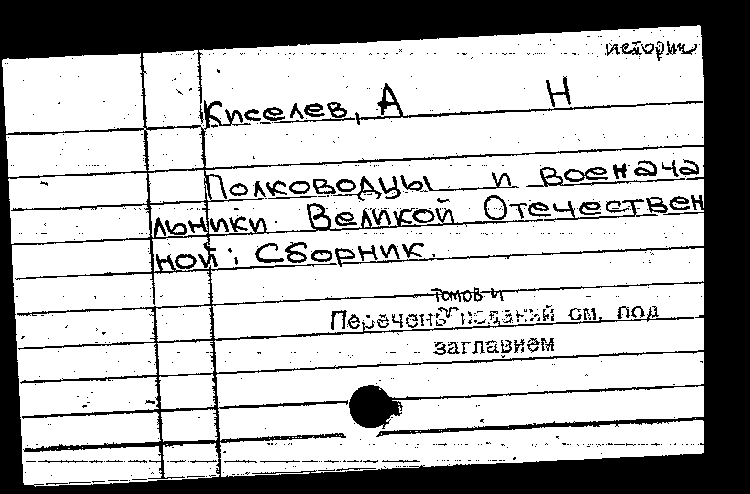 истории
Киселев, А Н
Полководцы и военача
льники Великой Отечествен
ной: Сборник.
томов и
Перечень изданий см. под
заглавием